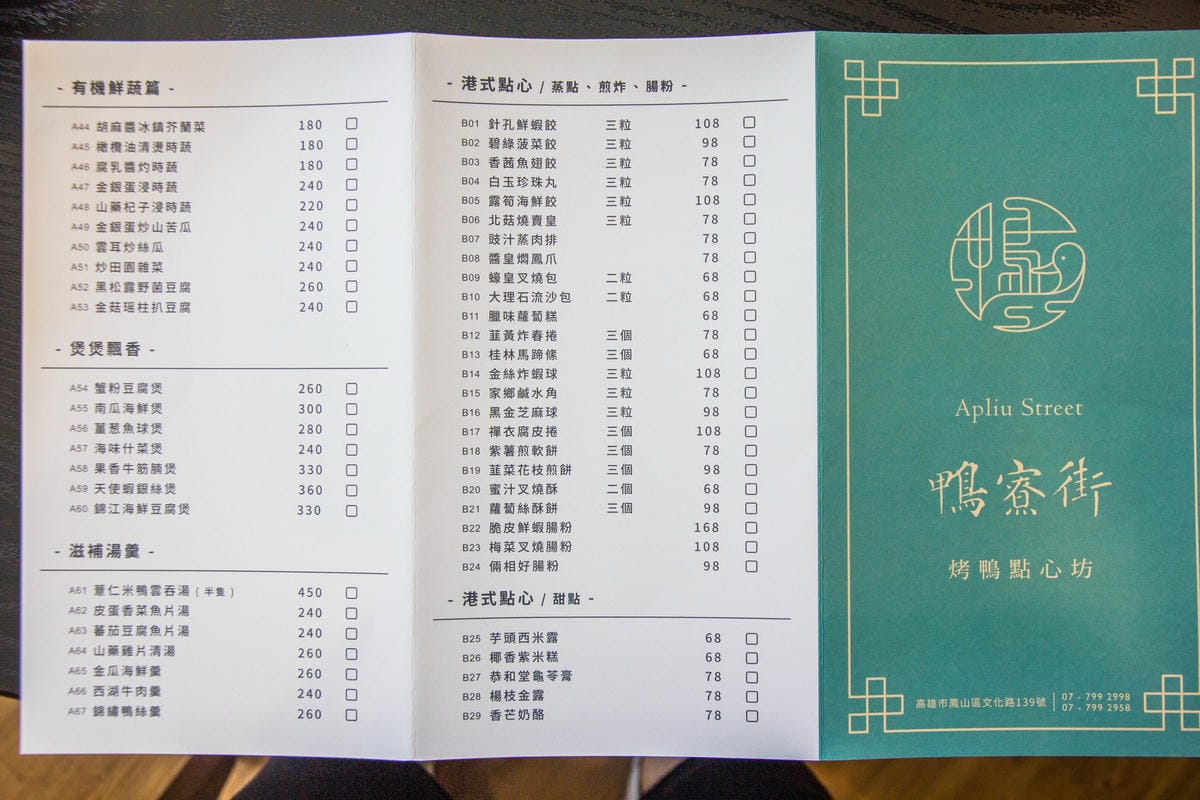 - 有機鮮蔬篇 -
A44 胡麻醬冰鎮芥蘭菜 180
A45 橄欖油清燙時蔬 180
A46 腐乳醬灼時蔬 180
A47 金銀蛋浸時蔬 240
A48 山藥杞子浸時蔬 220
A49 金銀蛋炒山苦瓜 240
A50 雲耳炒絲瓜 240
A51 炒田園雜菜 240
A52 黑松露野菌豆腐 260
A53 金菇瑤柱扒豆腐 240
- 煲煲飄香 -
A54 蟹粉豆腐煲 260
A55 南瓜海鮮煲 300
A56 薑葱魚球煲 280
A57 海味什菜煲 240
A58 果香牛筋腩煲 330
A59 天使蝦銀絲煲 360
A60 錦江海鮮豆腐煲 330
- 滋補湯羹 -
A61 薏仁米鴨雲吞湯 ( 半隻 ) 450
A62 皮蛋香菜魚片湯 240
A63 蕃茄豆腐魚片湯 240
A64 山藥雞片清湯 260
A65 金瓜海鮮羹 260
A66 西湖牛肉羹 240
A67 錦繡鴨絲羹 260
- 港式點心 / 蒸點、煎炸、腸粉 -
B01 針孔鮮蝦餃 三粒 108
B02 碧綠菠菜餃 三粒 98
B03 香茜魚翅餃 三粒 78
B04 白玉珍珠丸 三粒 78
B05 露筍海鮮餃 三粒 108
B06 北菇燒賣皇 三粒 78
B07 豉汁蒸肉排 78
B08 醬皇燜鳳爪 78
B09 蠔皇叉燒包 二粒 68
B10 大理石流沙包 二粒 68
B11 臘味蘿蔔糕 68
B12 韮黃炸春捲 三個 78
B13 桂林馬蹄條 三個 68
B14 金絲炸蝦球 三粒 108
B15 家鄉鹹水角 三粒 78
B16 黑金芝麻球 三粒 98
B17 禪衣腐皮捲 三個 108
B18 紫薯煎軟餅 三個 78
B19 韮菜花枝煎餅 三個 98
B20 蜜汁叉燒酥 二個 68
B21 蘿蔔絲酥餅 三個 98
B22 脆皮鮮蝦腸粉 168
B23 梅菜叉燒腸粉 108
B24 倆相好腸粉 98
- 港式點心 / 甜點 -
B25 芋頭西米露 68
B26 椰香紫米糕 68
B27 恭和堂龜苓膏 78
B28 楊枝金露 78
B29 香芒奶酪 78
鴨
Apliu Street
鴨寮街
烤鴨點心坊
高雄市鳳山區文化路139號
07 - 799 2998
07 - 799 2958